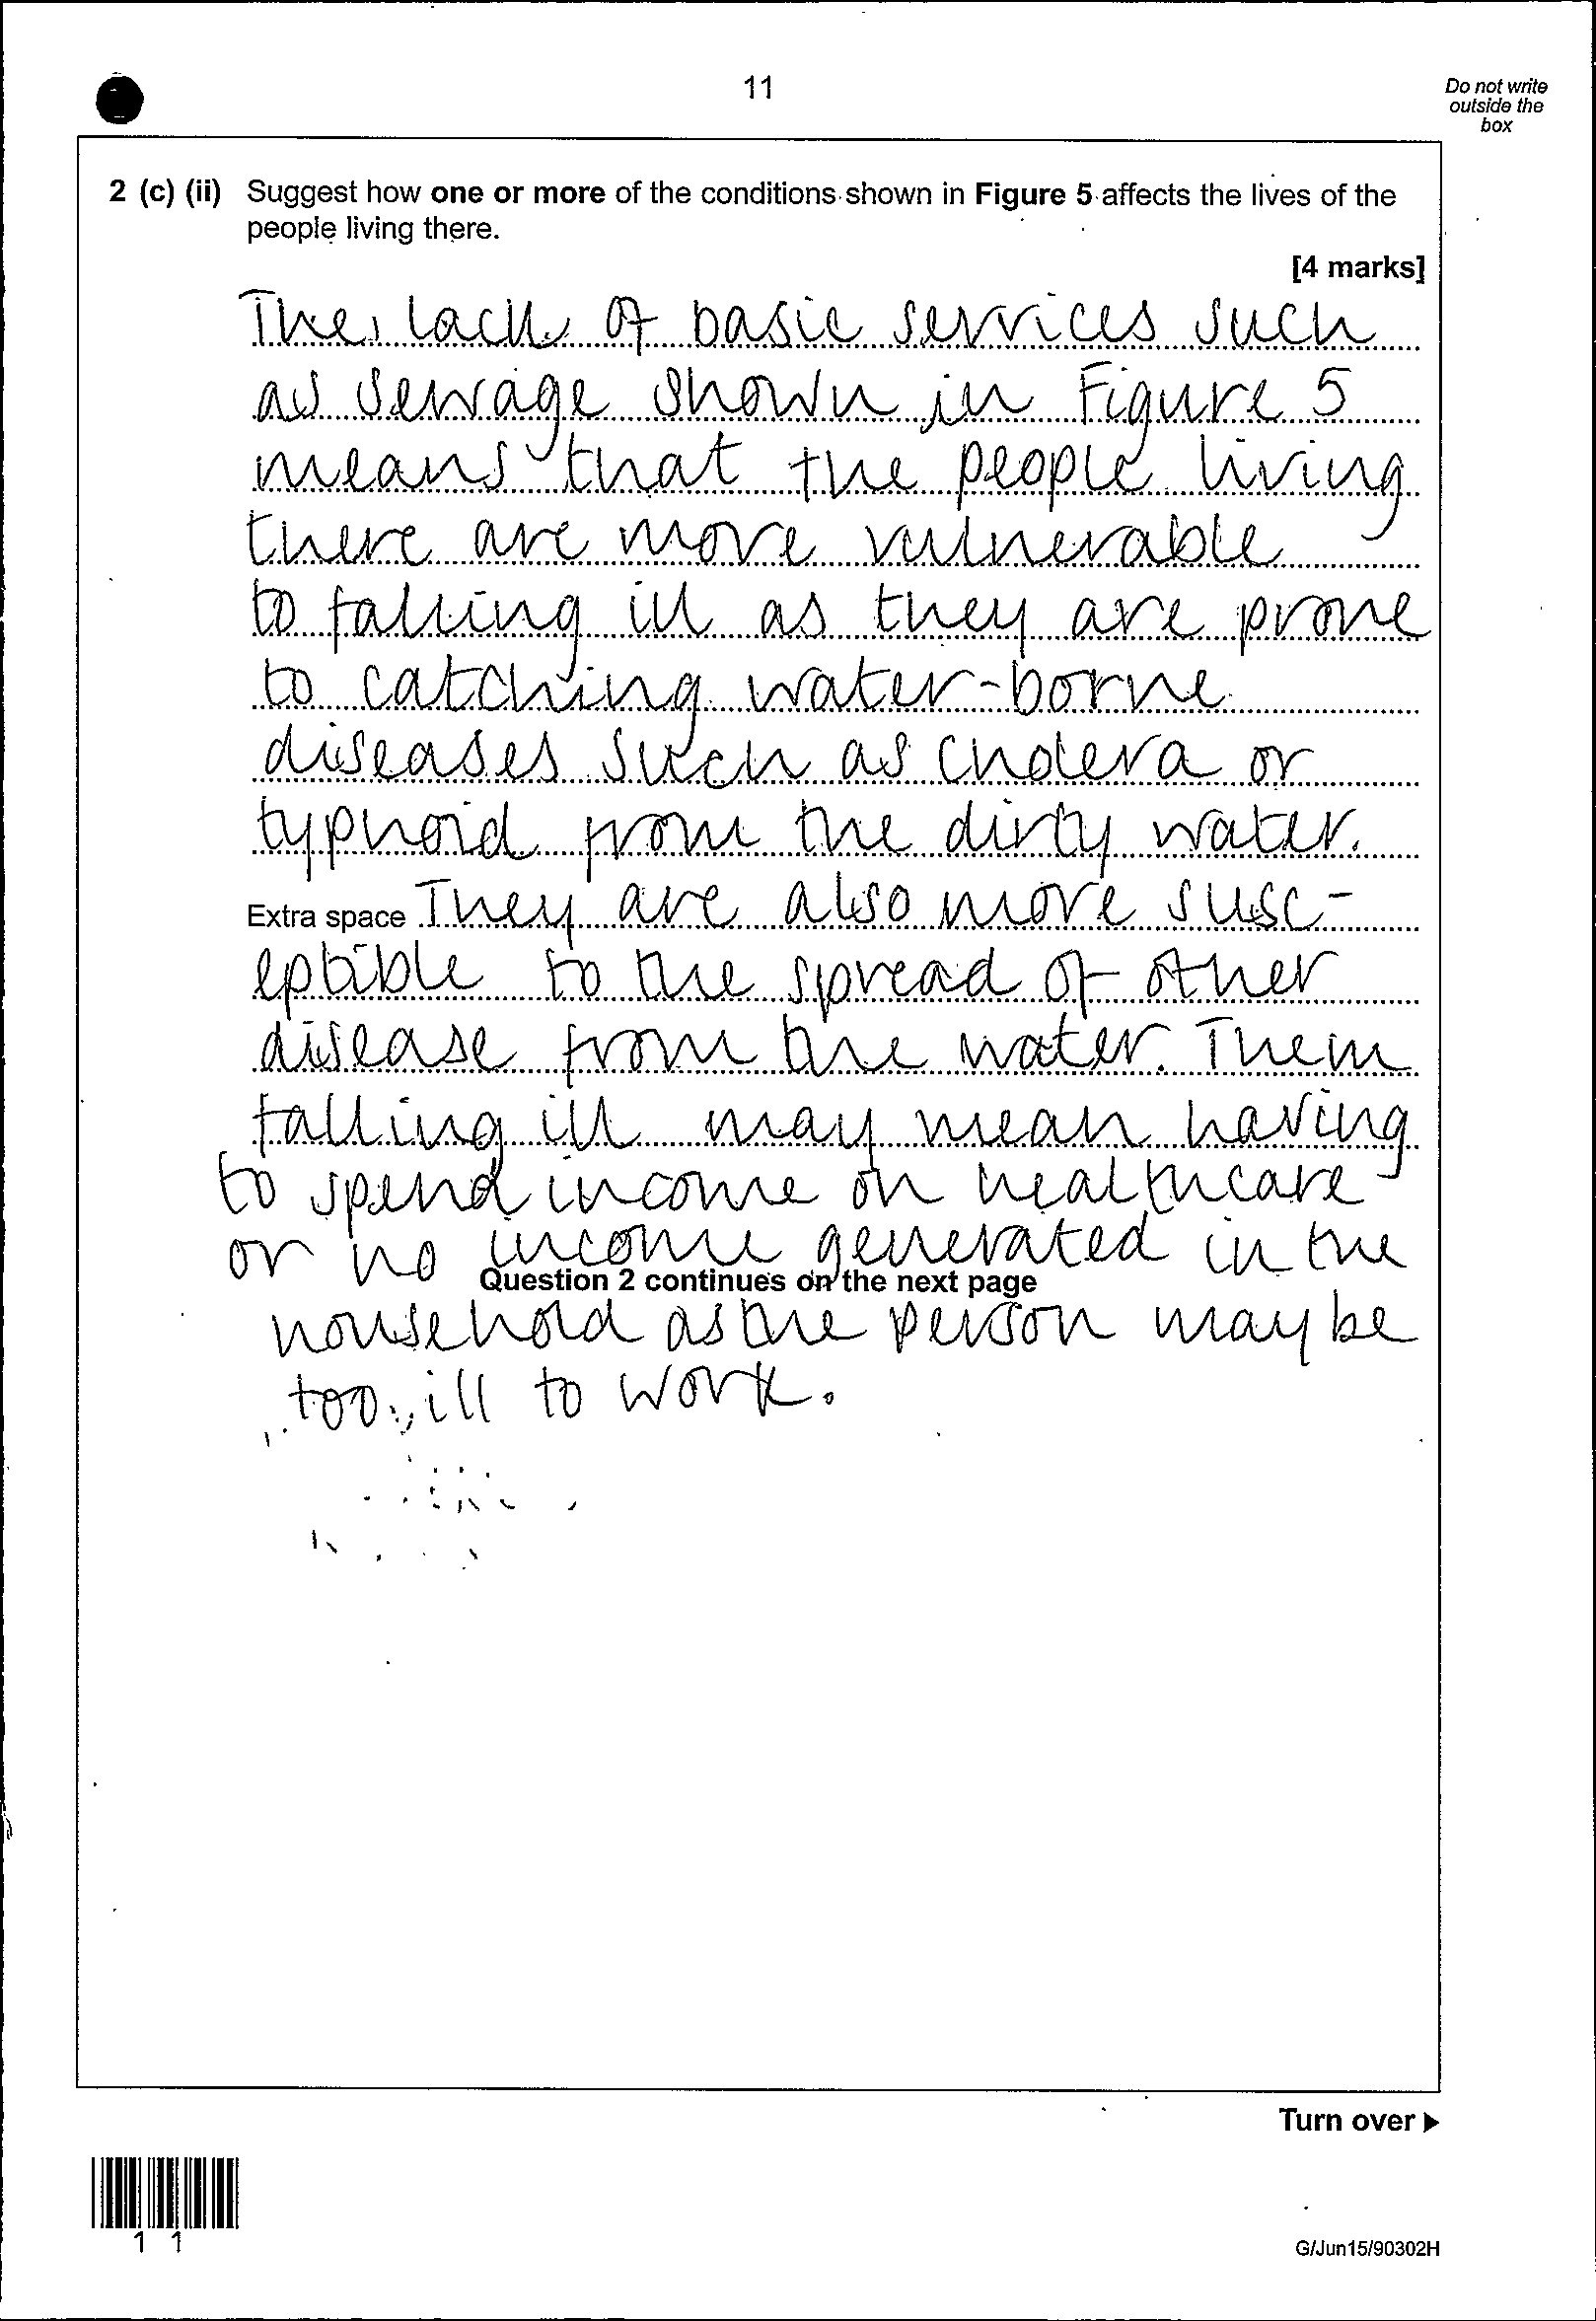 11
Do not write
outside the
box
2 (c) (ii) Suggest how one or more of the conditions shown in Figure 5 affects the lives of the
people living there.
[4 marks]
The lack of basic services such
as sewage shown in Figure 5
means that the people living
there are more vulnerable
to falling ill as they are prone
to catching water-borne
diseases such as cholera or
typhoid from the dirty water.
Extra space They are also more susc-
eptible to the spread of other
disease from the water. Them
falling ill may mean having
to spend income on healthcare
or no income generated in the
Question 2 continues on the next page
household as the person may be
too ill to work.
Turn over ▶
1 1
G/Jun15/90302H